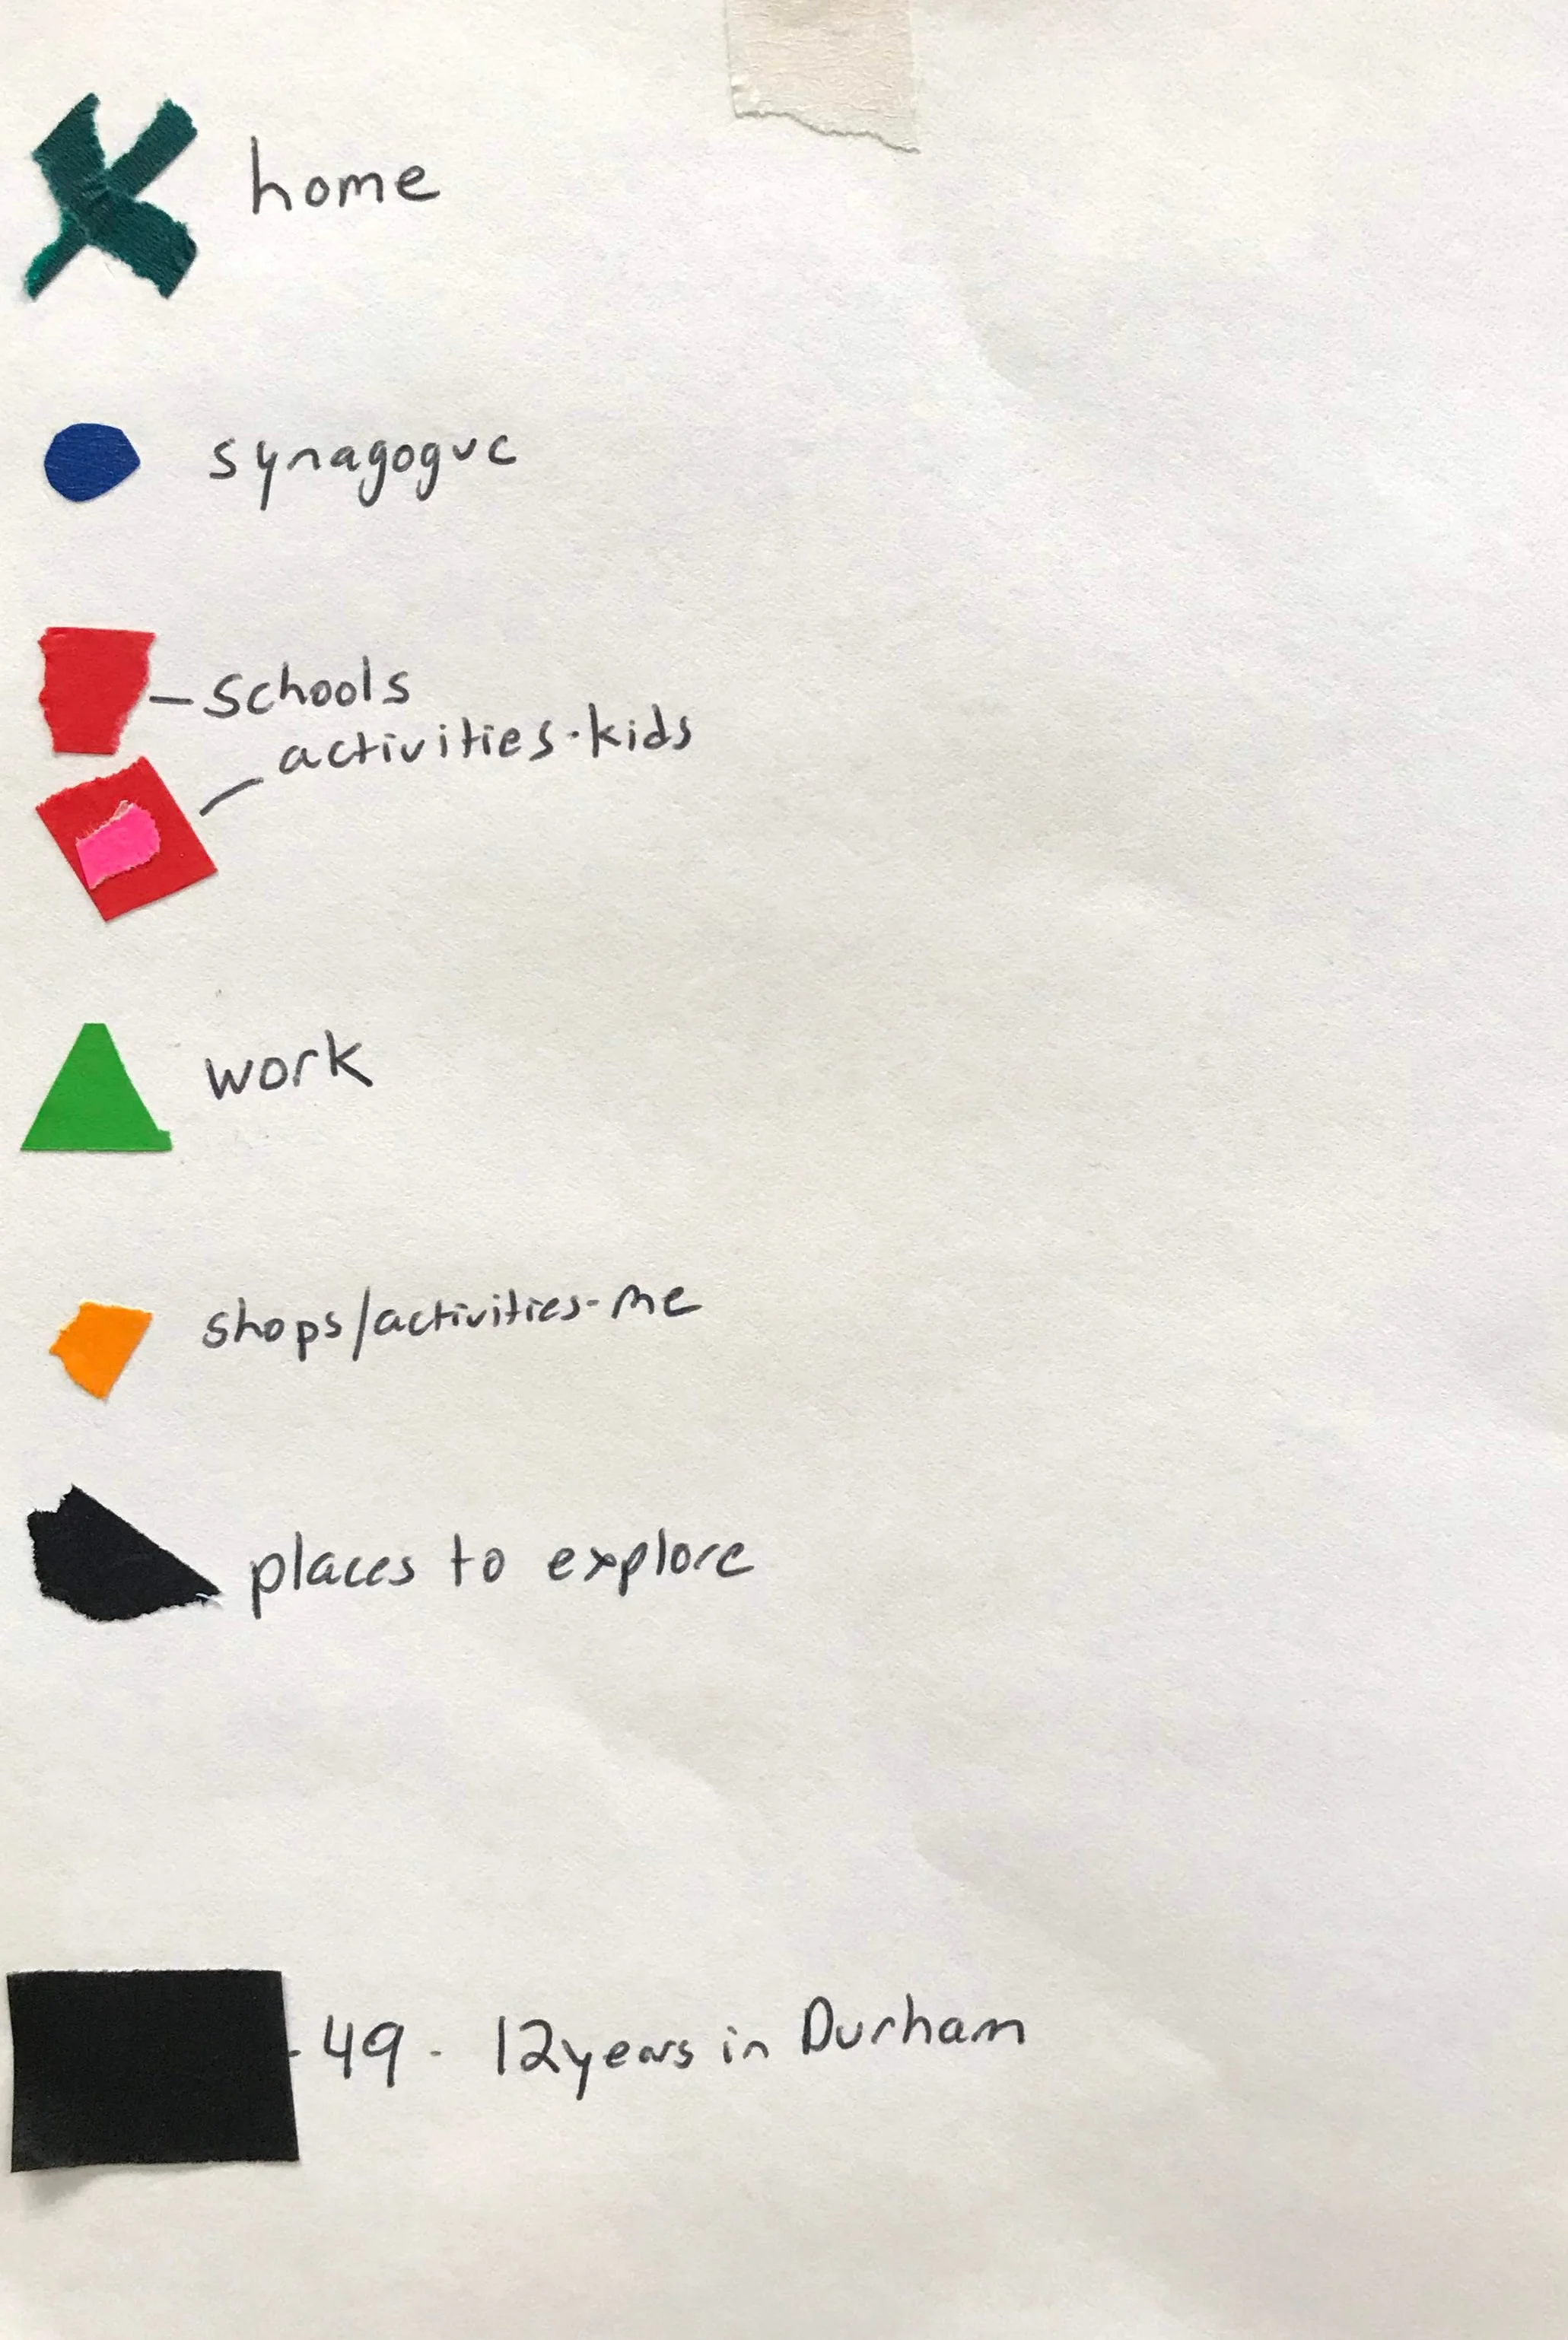 home
synagogue
- Schools
activities-kids
work
shops/activities-me
places to explore
- 49 - 12 years in Durham